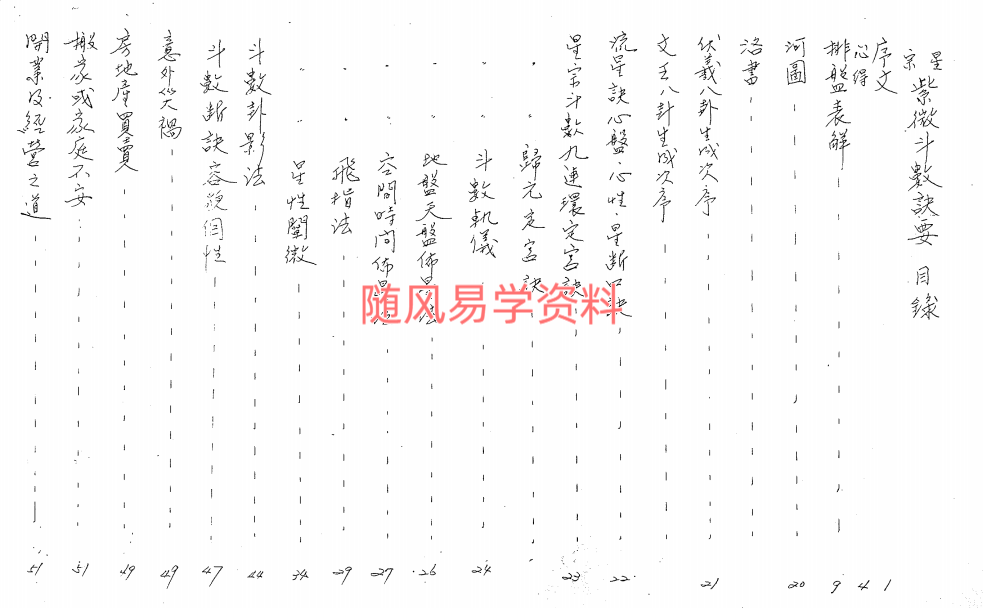 星宗 紫微斗數訣要 目錄
序文 1
心得 4
排盤表解 9
河圖 20
洛書
伏義八卦生成次序 21
文王八卦生成次序
流星訣心盤、心性、星斷口訣 22
星宗斗數九連環定宮訣 23
〃 〃 歸元定宮訣
〃 〃 斗數軌儀 24
〃 〃 地盤天盤佈星法 26
〃 〃 空間時間佈星法 27
〃 〃 飛指法 29
〃 〃 星性闡微 34
斗數卦影法 44
斗數斷訣容貌個性 47
意外災禍 49
房地產買賣 49
搬家或家庭不安 51
開業及經營之道 51
随风易学资料